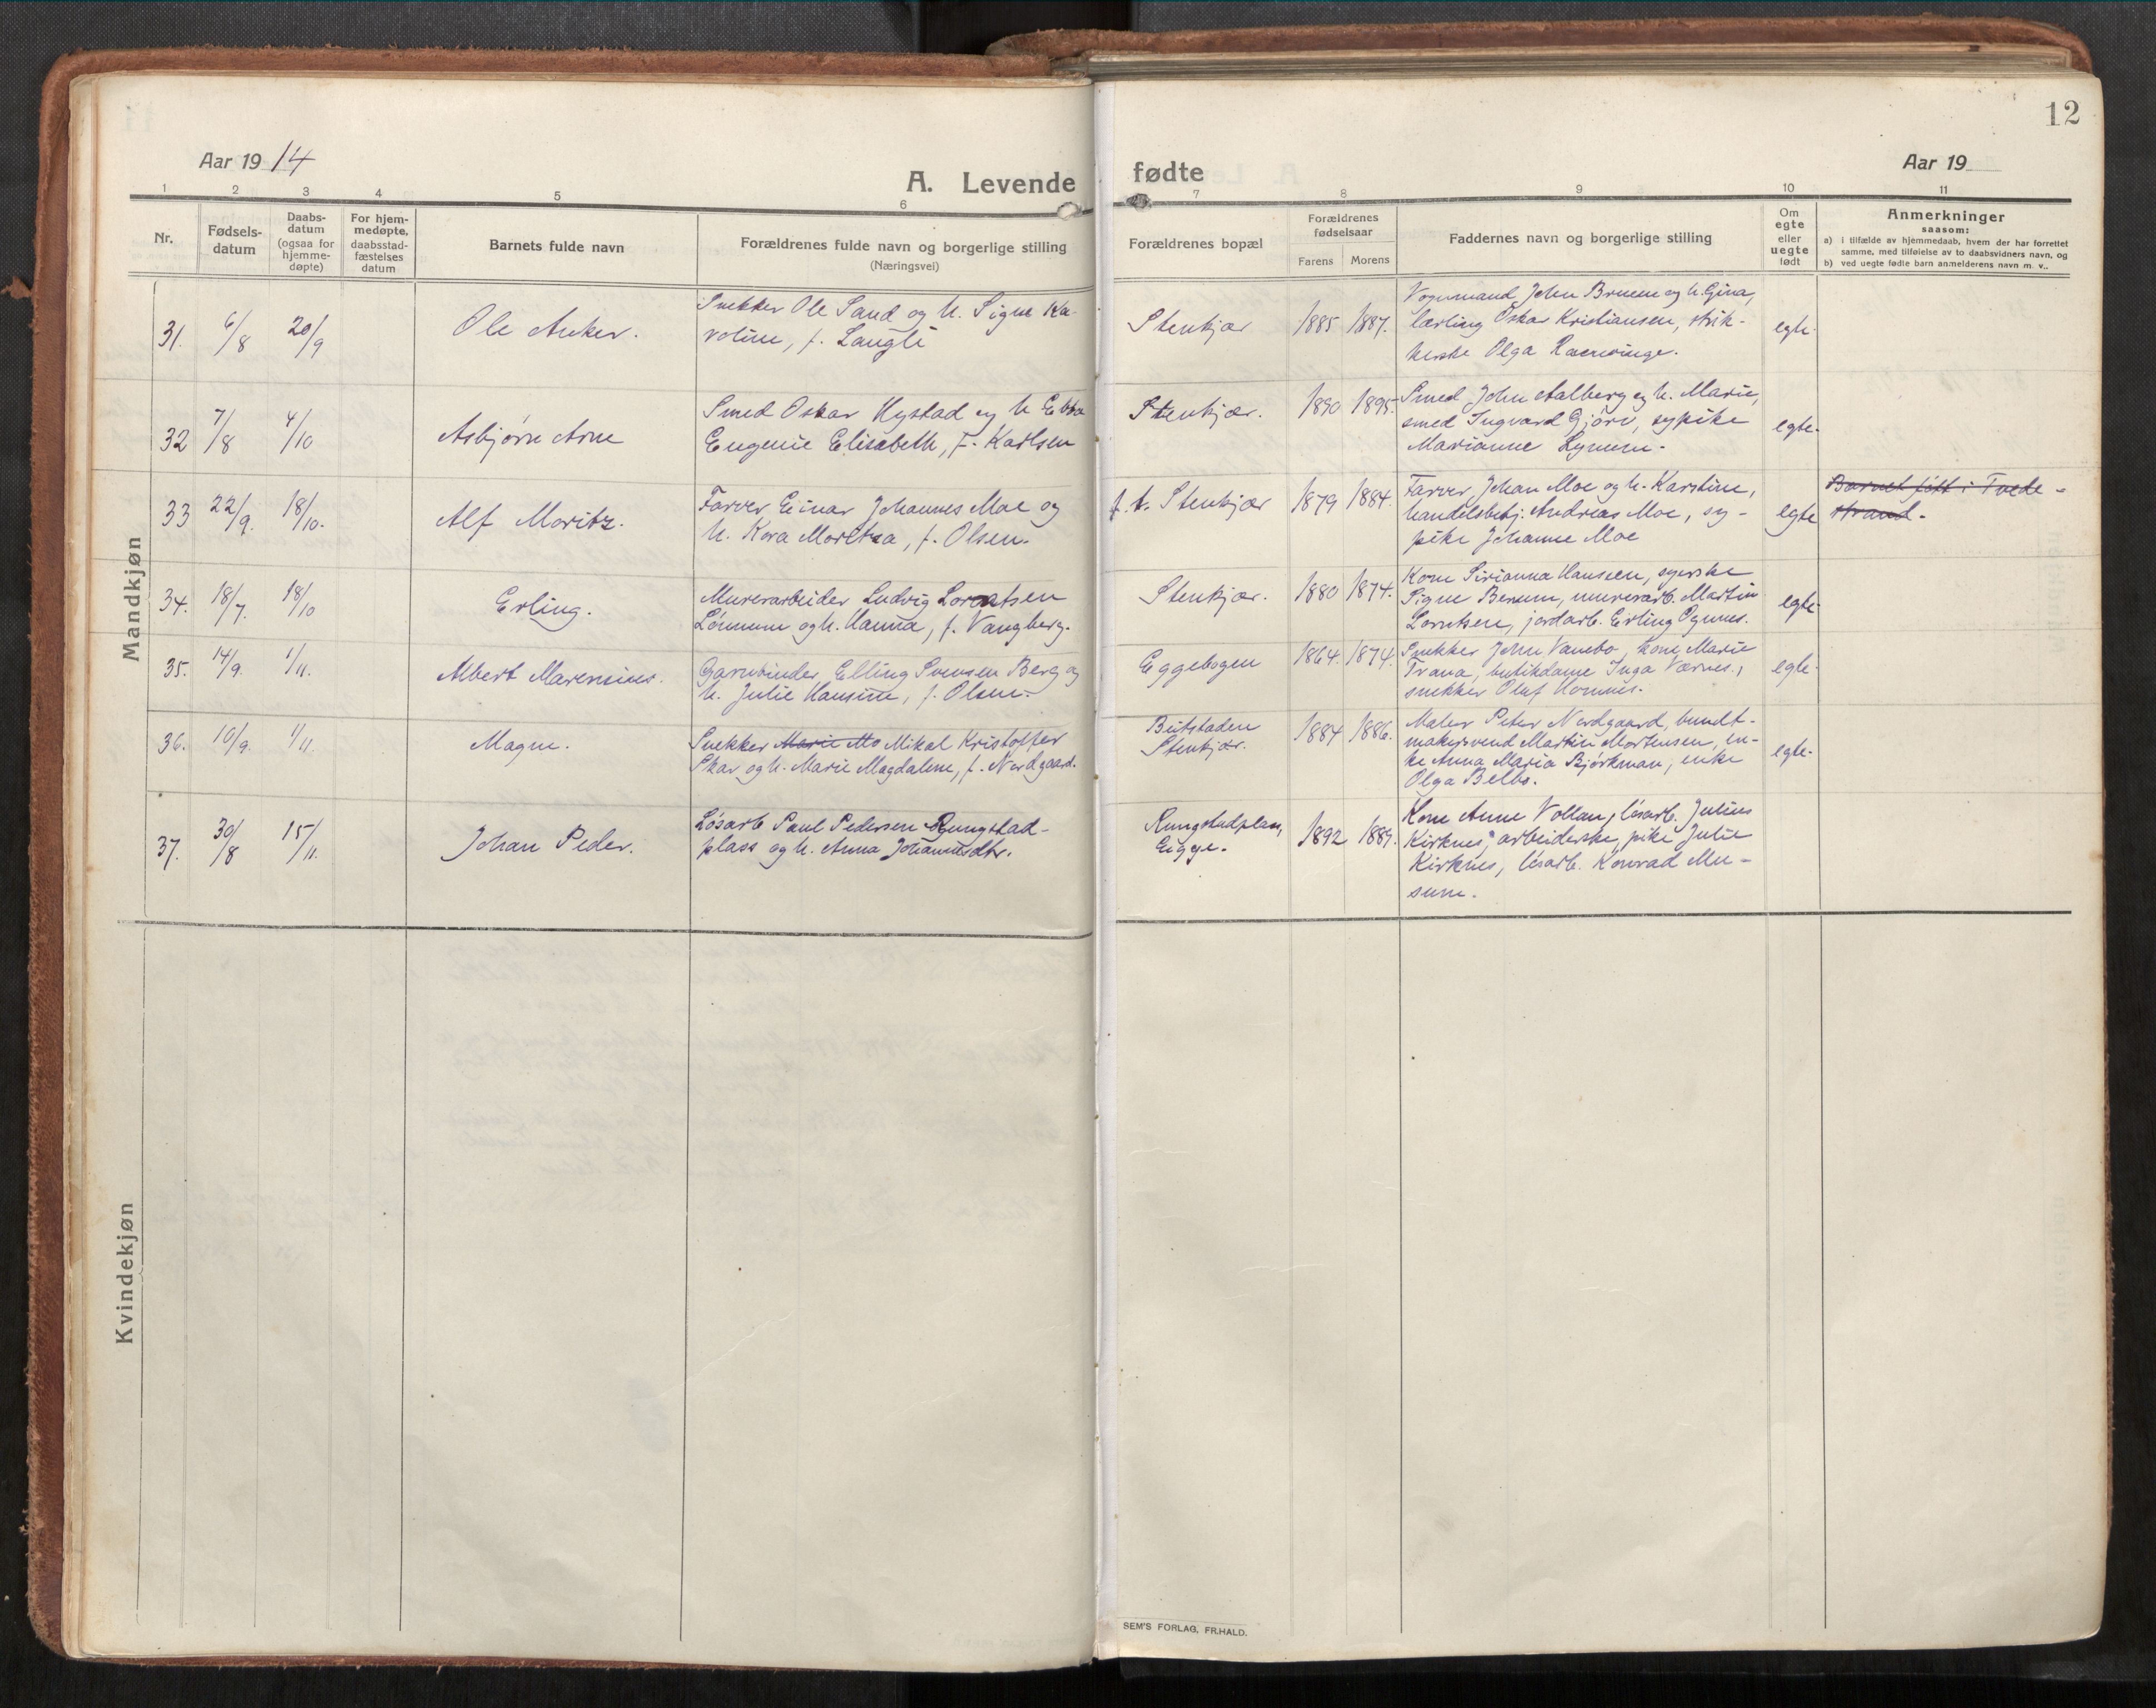 12
Aar 1914
A. Levende fødte
Aar 19
1 2 3 4 5 6 7 8 9 10 11
Nr.
Fødsels-
datum
Daabs-
datum
(ogsaa for
hjemme-
døpte)
For hjem-
medøpte,
daabsstad-
fæstelses
datum
Barnets fulde navn
Forældrenes fulde navn og borgerlige stilling
(Næringsvei)
Forældrenes bopæl
Forældrenes
fødselsaar
Farens Morens
Faddernes navn og borgerlige stilling
Om
egte
eller
uegte
født
Anmerkninger
saasom:
a) i tilfælde av hjemmedaab, hvem der har forrettet
samme, med tilføielse av to daabsvidners navn, og
b) ved uegte fødte barn anmelderens navn m. v..
Mandkjøn
31. 6/8 20/9 Ole Anker.
Snekker Ole Sand og h. Signe Ka-
roline, f. Langli
Stenkjær 1885 1887.
Vognmand John Bruem og h. Gina,
lærling Oskar Kristiansen, strik-
kerske Olga
egte.
32 7/8 4/10 Asbjørn Arne
Smed Oskar Hystad og h Ebba
Eugenie Elisabeth, f. Karlsen
Stenkjær. 1890 1895.
Smed John Aalberg og h. Marie,
smed Ingvard Gjörv, sypike
Marianne Lynum.
egte.
33 22/9. 18/10. Alf Moritz.
Farver Einar Johannes Moe og
h. Kora Moretza, f. Olsen.
f. t. Stenkjær 1879 1884.
Farver Johan Moe og h. Karstine,
handelsbetj. Andreas Moe, sy-
pike Johanne Moe
egte
Barnet født i Tvede-
strand.
34. 18/7. 18/10 Erling.
Murerarbeider Ludvig Lorntsen
Lönnum og h. Hanna, f. Vangberg.
Stenkjær. 1880 1874.
Kone Sirianna Hansen, syerske
Signe Benum, murerarb. Martin
Lorntsen, jordarb. Erling Ognnes.
egte
35. 14/9. 1/11. Albert Marensius.
Garnbinder Elling Svensen Berg og
h. Julie Hansine, f. Olsen.
Eggebogen 1864. 1874.
Snekker John Vanebo, kone Marie
Trana, butikdame Inga Værnes,
snekker Oluf Homnes.
egte
36. 10/9. 1/11. Magne.
Snekker Marie Mo Mikal Kristoffer
Skar og h. Marie Magdalene, f. Nordgaard.
Beitstaden
Stenkjær.
1884 1886.
Maler Peter Nordgaard, bundt-
makersvend Martin Mortensen, en-
ke Anna Maria Björkman, enke
Olga Belbo.
egte.
37. 30/8 15/11. Johan Peder.
Løsarb Paul Pedersen Rungstad-
plass og h. Anna Johannesdtr.
Rungstadplass,
Egge.
1892 1889.
Kone Anne Vollan, lösarb. Julius
Kirknes, arbeiderske, pike Julie
Kirknes, lösarb. Konrad Mu-
sum.
Kvindekjøn
SEM'S FORLAG, FR.HALD.